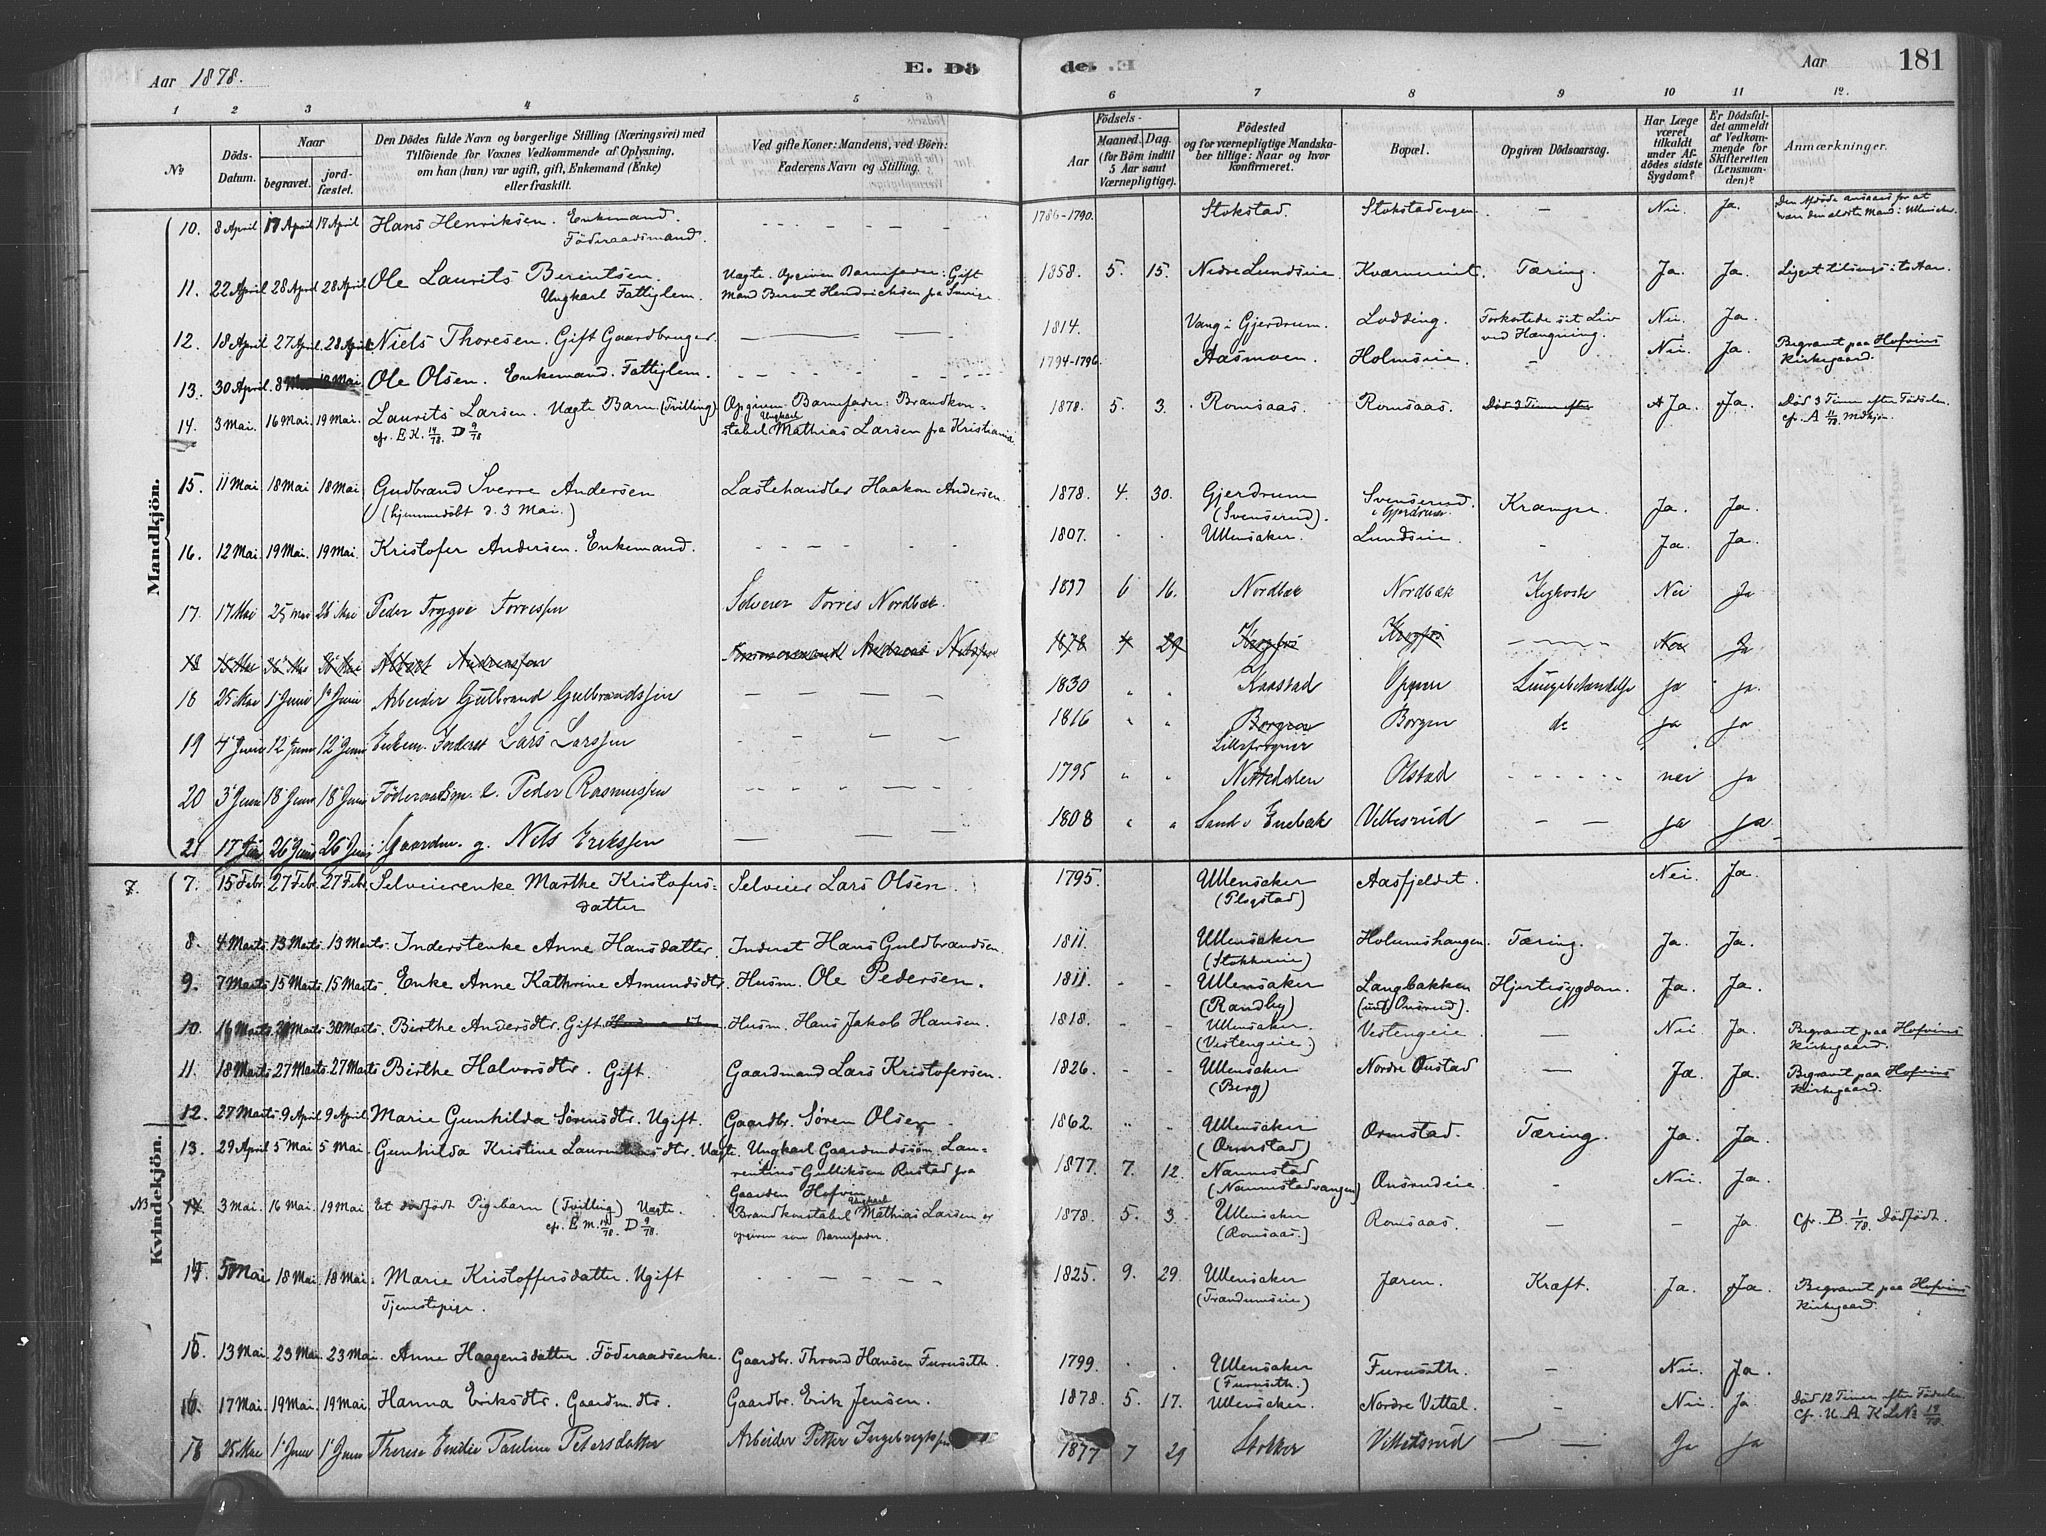 Aar 1878. E. Dö de. Aar 181
1 2 3 4 5 6 7 8 9 10 11 12.
№ Döds-Datum. Naar begravet. jord-fæstet. Den Dödes fulde Navn og borgerlige Stilling (Næringsvei) med Tilföiende for Voxnes Vedkommende af Oplysning, om han (hun) var ugift, gift, Enkemand (Enke) eller fraskilt. Ved gifte Koner: Mandens, ved Börn: Faderens Navn og Stilling. Födsels- Aar Maaned. Dag. (for Börn indtil 5 Aar samt Værnepligtige). Födested og for værnepligtige Mandskaber tillige: Naar og hvor konfirmeret. Bopæl. Opgiven Dödsaarsag. Har Læge været tilkaldt under Afdödes sidste Sygdom? Er Dödsfaldet anmeldt af Vedkommende for Skifteretten (Lensmanden)? Anmærkninger.
Mandkjön.
10. 8 April 17 April 17 April Hans Henriksen. Enkemand. Föderaadsmand. 1786-1790. Stokstad. Stokstadengen - Nei Ja.
11. 22 April 28 April 28 April Ole Laurits Berentsen. Ungkarl Fattiglem. Uægte. Opgiven Barnefader: Gift Mand Berent Hendricksen fra Sverige 1858. 5. 15. Nedre Lundseie. Tæring. Ja. Ja.
12. 18 April 27 April. 28 April Niels Thoresen. Gift Gaardbruger. 1814. Vang i Gjerdrum. Lodding. Forkortede sit Liv ved Hængning. Nei. Ja.
13. 30 April. 8 Mai Ole Olsen. Enkemand. Fattiglem. 1794-1796. Aasmoen. Holmseie. - Nei Ja. Begravet paa Hofvins Kirkegaard.
14. 3 Mai. 16 Mai. 19 Mai. Laurits Larsen. Uægte Barn (Tvilling) cfr. E K. 14/78. D 9/78 Opgiven Barnefader: Brandkonstabel Ungkarl Mathias Larsen fra Kristiania 1878. 5. 3. Romsaas. Romsaas. Död 3 Timer efter Ja. Ja. Död 3 Timer efter Födselen. cfr. A 11/78. Mdkjön.
15. 11 Mai 18 Mai 18 Mai Gudbrand Sverre Andersen (hjemmedöbt d. 3 Mai.) Lastehandler Haakon Andersen. 1878. 4. 30. Gjerdrum (Svenserud). Svenserud i Gjerdrum. Krampe. Ja. Ja.
16. 12 Mai. 19 Mai. 19 Mai. Kristofer Andersen. Enkemand. 1807. Ullensaker. Lundseie. - Ja. Ja.
17. 17 Mai 25 Mai 26 Mai Peder Tryggve Torressen Selveier Torris Nordbæk. 1877 6 16. Nordbæk Nordbæk Kighoste Nei Ja
18 15 Mai 26 Mai 26 Mai Albert Andreassen 1878 4 29 Ja
18 25 Mai 1 Juni 1 Juni Arbeider Gulbrand Gulbrandssen 1830 " " Kaastad Lungebetændelse ja ja.
19 4 Juni 12 Juni 12 Juni Enkem. Inderst Lars Larssen 1816 " " Borgen Lillefrogner Borgen do ja ja
20 3 Juni 18 Juni 18 Juni Föderaadsm. e. Peder Rasmussen 1795 " " Nittedalen Olstad nei ja
21 17 Juni 26 Juni 26 Juni Gaardm. g. Nils Erikssen 1808 " " Sand i Enebak Vilbersrud ja ja
Kvindekjön.
7. 7. 15 Febr 27 Febr. 27 Febr Selveierenke Marthe Kristofersdatter Selveier Lars Olsen. 1795. Ullensaker (Flogstad) Aasfjeldet. Nei. Ja.
8. 4 Marts 13 Marts. 13 Marts. Inderstenke Anne Hansdatter. Inderst Hans Guldbrandsen. 1811. Ullensaker Holumshangen. Tæring. Ja. Ja.
9. 7 Marts 15 Marts 15 Marts. Enke Anne Kathrine Amundsdtr. Husm. Ole Pedersen. 1811. - - Ullensaker (Randby) Langbakken (und. Onsrud). Hjertesygdom. Ja. Ja.
10. 16 Marts Marts 30 Marts. Birthe Andersdtr. Gift Husm. Hans Jakob Hansen. 1818. - - Ullensaker. (Vestengeie.) Vestengeie. - Nei Ja. Begravet paa Hofvins Kirkegaard.
11. 18 Marts 27 Marts. 27 Marts Birthe Halvorsdtr. Gift. Gaardmand Lars Kristofersen. 1826. - - Ullensaker (Berg) Nordre Onstad - Ja. Ja. Begravet paa Hofvins Kirkegaard.
12. 27 Marts 9 April 9 April Marie Gunhilda Sörensdtr. Ugift. Gaardbr. Sören Olsen. 1862. " - Ullensaker (Ormstad) Ormstad. Tæring. Ja. Ja.
13. 29 April 5 Mai 5 Mai. Gunhilda Kristine Laurentinsdtr. Uægte. Ungkarl Gaardmandssön Laurentius Gulliksen Rustad fra Gaarden Hofvin 1877. 7. 12. Nannestad (Nannestadvangen) Onsrudeie. - Nei. Ja.
NB 14 3 Mai. 16 Mai. 19 Mai Et dödfödt Pigebarn (Tvilling) Uægte. cfr. E M. 14/78. D 9/78. Brandkonstabel Ungkarl Mathias Larsen er opgiven som Barnefader. 1878. 5. 3. Ullensaker (Romsaas.) Romsaas. - - Ja Cfr. B. 1/78. Dödfödt.
14. 5 Mai 18 Mai. 18 Mai. Marie Kristoffersdatter. Ugift Tjenestepige. 1825. 9. 29. Ullensaker (Trandumseie) Jaren. Kræft. Ja. Ja. Begravet paa Hofvins Kirkegaard.
15. 13 Mai. 23 Mai. 23 Mai. Anne Haagensdatter. Föderaadsenke. Gaardbr. Thrond Hansen Furuseth. 1799. Ullensaker (Furuseth.) Furuseth. - Nei. Ja.
16. 17 Mai. 19 Mai. 19 Mai. Hanna Eriksdtr. Gaardm.dtr. Gaardbr. Erik Jensen. 1878. 5. 17. Ullensaker. Nordre Vittal. - Nei. Ja Död 12 Timer efter Födselen.
18 25 Mai 1 Juni 1 Juni Therese Emilie Pauline Petersdatter Arbeider Petter Ingebregtsen 1877 7 29 Vilbersrud - Ja ja